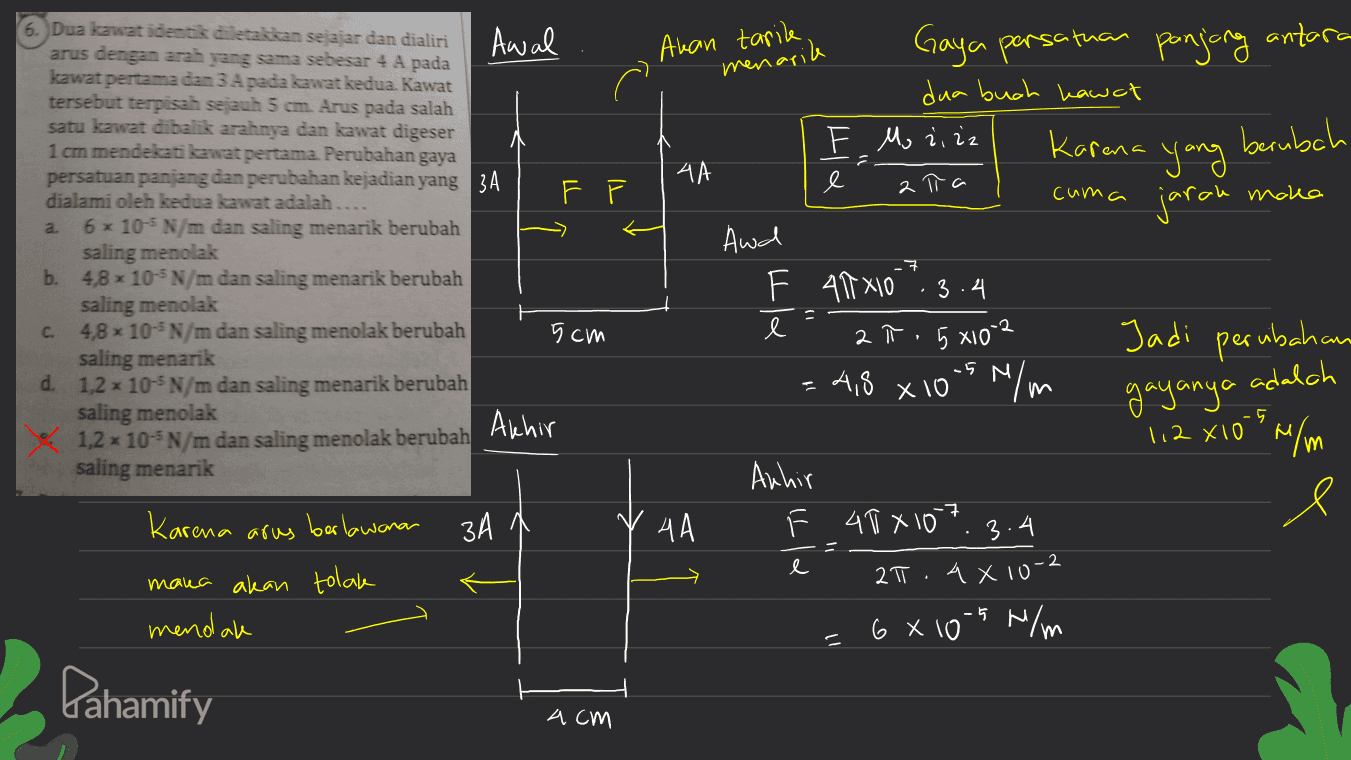 6. Dua kawat identik diletakkan sejajar dan dialiri
arus dengan arah yang sama sebesar 4 A pada
kawat pertama dan 3 A pada kawat kedua. Kawat
tersebut terpisah sejauh 5 cm. Arus pada salah
satu kawat dibalik arahnya dan kawat digeser
1 cm mendekati kawat pertama. Perubahan gaya
persatuan panjang dan perubahan kejadian yang
dialami oleh kedua kawat adalah ....
a. 6 × 10⁻⁵ N/m dan saling menarik berubah
saling menolak
b. 4,8 × 10⁻⁵ N/m dan saling menarik berubah
saling menolak
c. 4,8 × 10⁻⁵ N/m dan saling menolak berubah
saling menarik
d. 1,2 × 10⁻⁵ N/m dan saling menarik berubah
saling menolak
1,2 × 10⁻⁵ N/m dan saling menolak berubah
saling menarik
Awal
Akan tarik
menarik
3A
F F
4A
5 cm
Gaya persatuan panjang antara
dua buah kawat
F/l = μ₀ i₁ i₂ / 2πa
Karena yang berubah
cuma jarak maka
Awal
F/l = 4π×10⁻⁷ . 3 . 4 / 2π . 5×10⁻²
= 4,8 × 10⁻⁵ N/m
Jadi perubahan
gayanya adalah
1,2 × 10⁻⁵ N/m
l
Akhir
Karena arus berlawanan
maka akan tolak
menolak
3A
4A
4 cm
Akhir
F/l = 4π × 10⁻⁷ . 3 . 4 / 2π . 4 × 10⁻²
= 6 × 10⁻⁵ N/m
Pahamify